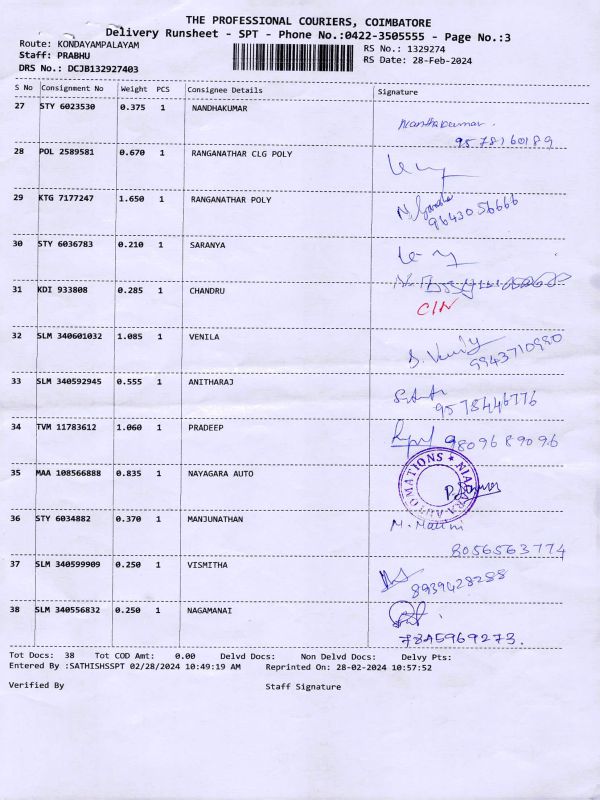 THE PROFESSIONAL COURIERS, COIMBATORE
Delivery Runsheet - SPT - Phone No.:0422-3505555 - Page No.:3
Route: KONDAYAMPALAYAM
RS No.: 1329274
Staff: PRABHU
RS Date: 28-Feb-2024
DRS No.: DCJB132927403
S No Consignment No Weight PCS Consignee Details Signature
27 STY 6023530 0.375 1 NANDHAKUMAR
Nandhakumar.
9578160189
28 POL 2589581 0.670 1 RANGANATHAR CLG POLY
29 KTG 7177247 1.650 1 RANGANATHAR POLY
9643056666
30 STY 6036783 0.210 1 SARANYA
31 KDI 933808 0.285 1 CHANDRU
CIN
32 SLM 340601032 1.085 1 VENILA
9943710990
33 SLM 340592945 0.555 1 ANITHARAJ
9578446776
34 TVM 11783612 1.060 1 PRADEEP
9809689096
35 MAA 108566888 0.835 1 NAYAGARA AUTO
36 STY 6034882 0.370 1 MANJUNATHAN
M. Malini
8056563774
37 SLM 340599909 0.250 1 VISMITHA
8939428288
38 SLM 340556832 0.250 1 NAGAMANAI
7845969273.
Tot Docs: 38 Tot COD Amt: 0.00 Delvd Docs: Non Delvd Docs: Delvy Pts:
Entered By :SATHISHSSPT 02/28/2024 10:49:19 AM Reprinted On: 28-02-2024 10:57:52
Verified By Staff Signature